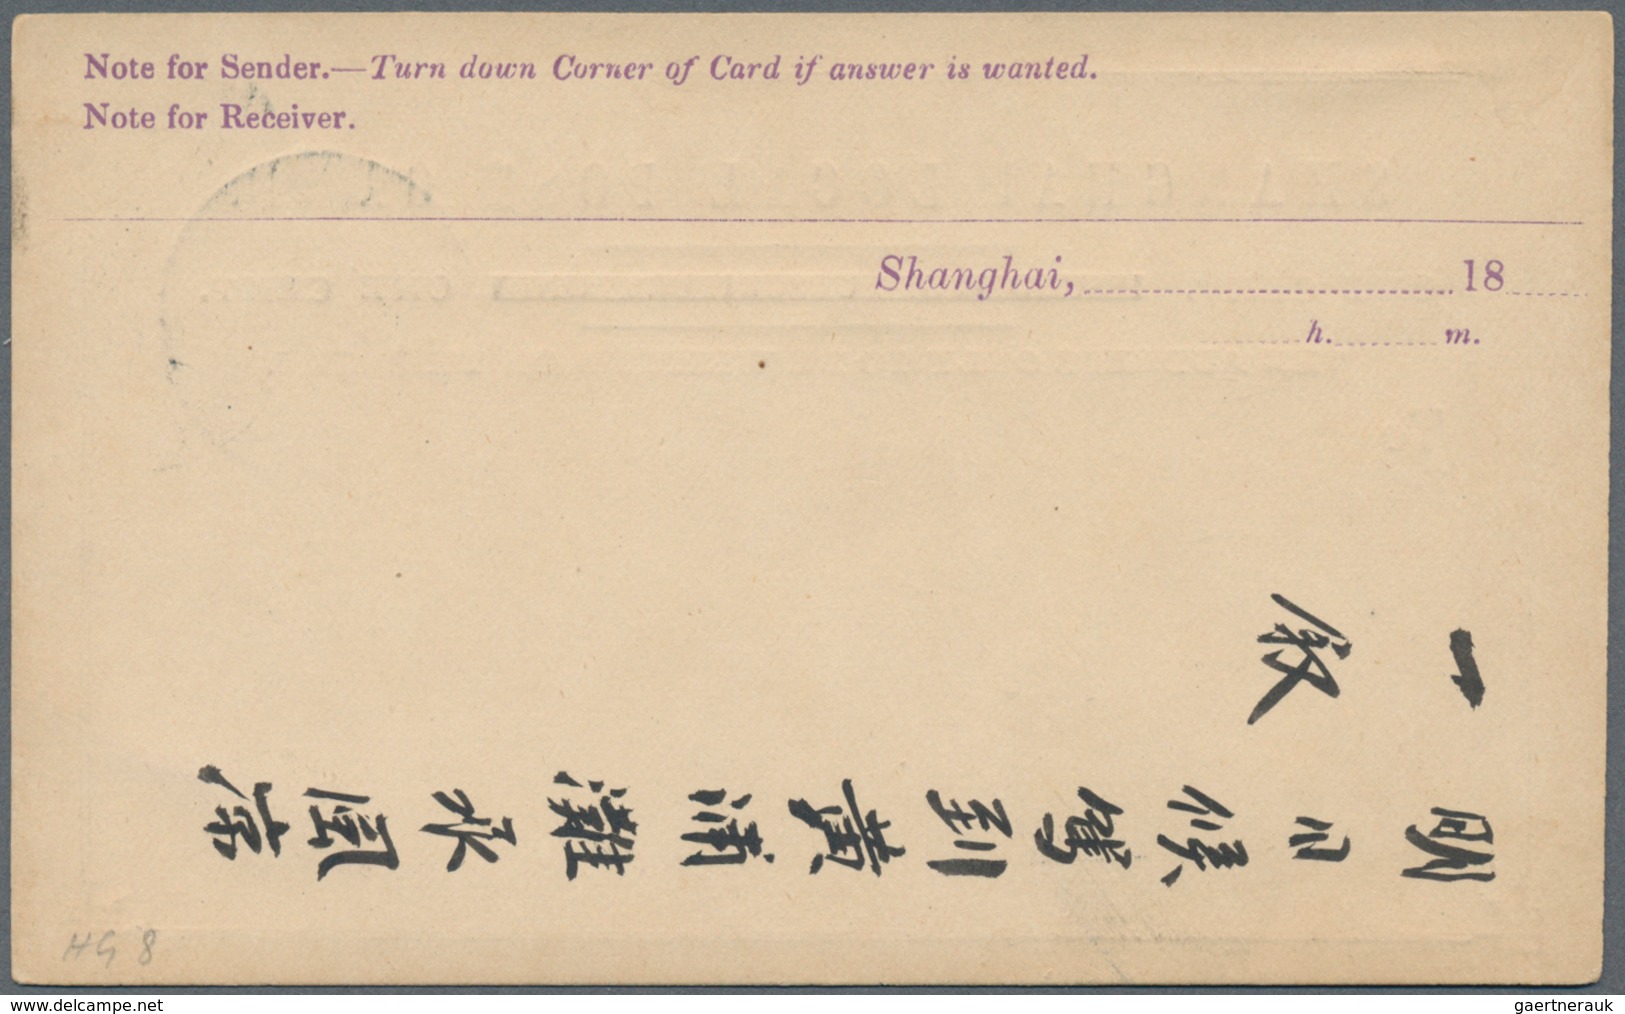 Note for Sender.—Turn down Corner of Card if answer is wanted.
Note for Receiver.
Shanghai, 18
h. m.
明日候駕到黃浦灘水國席
一敘
HG 8
delcampe.net
gaertnerauk